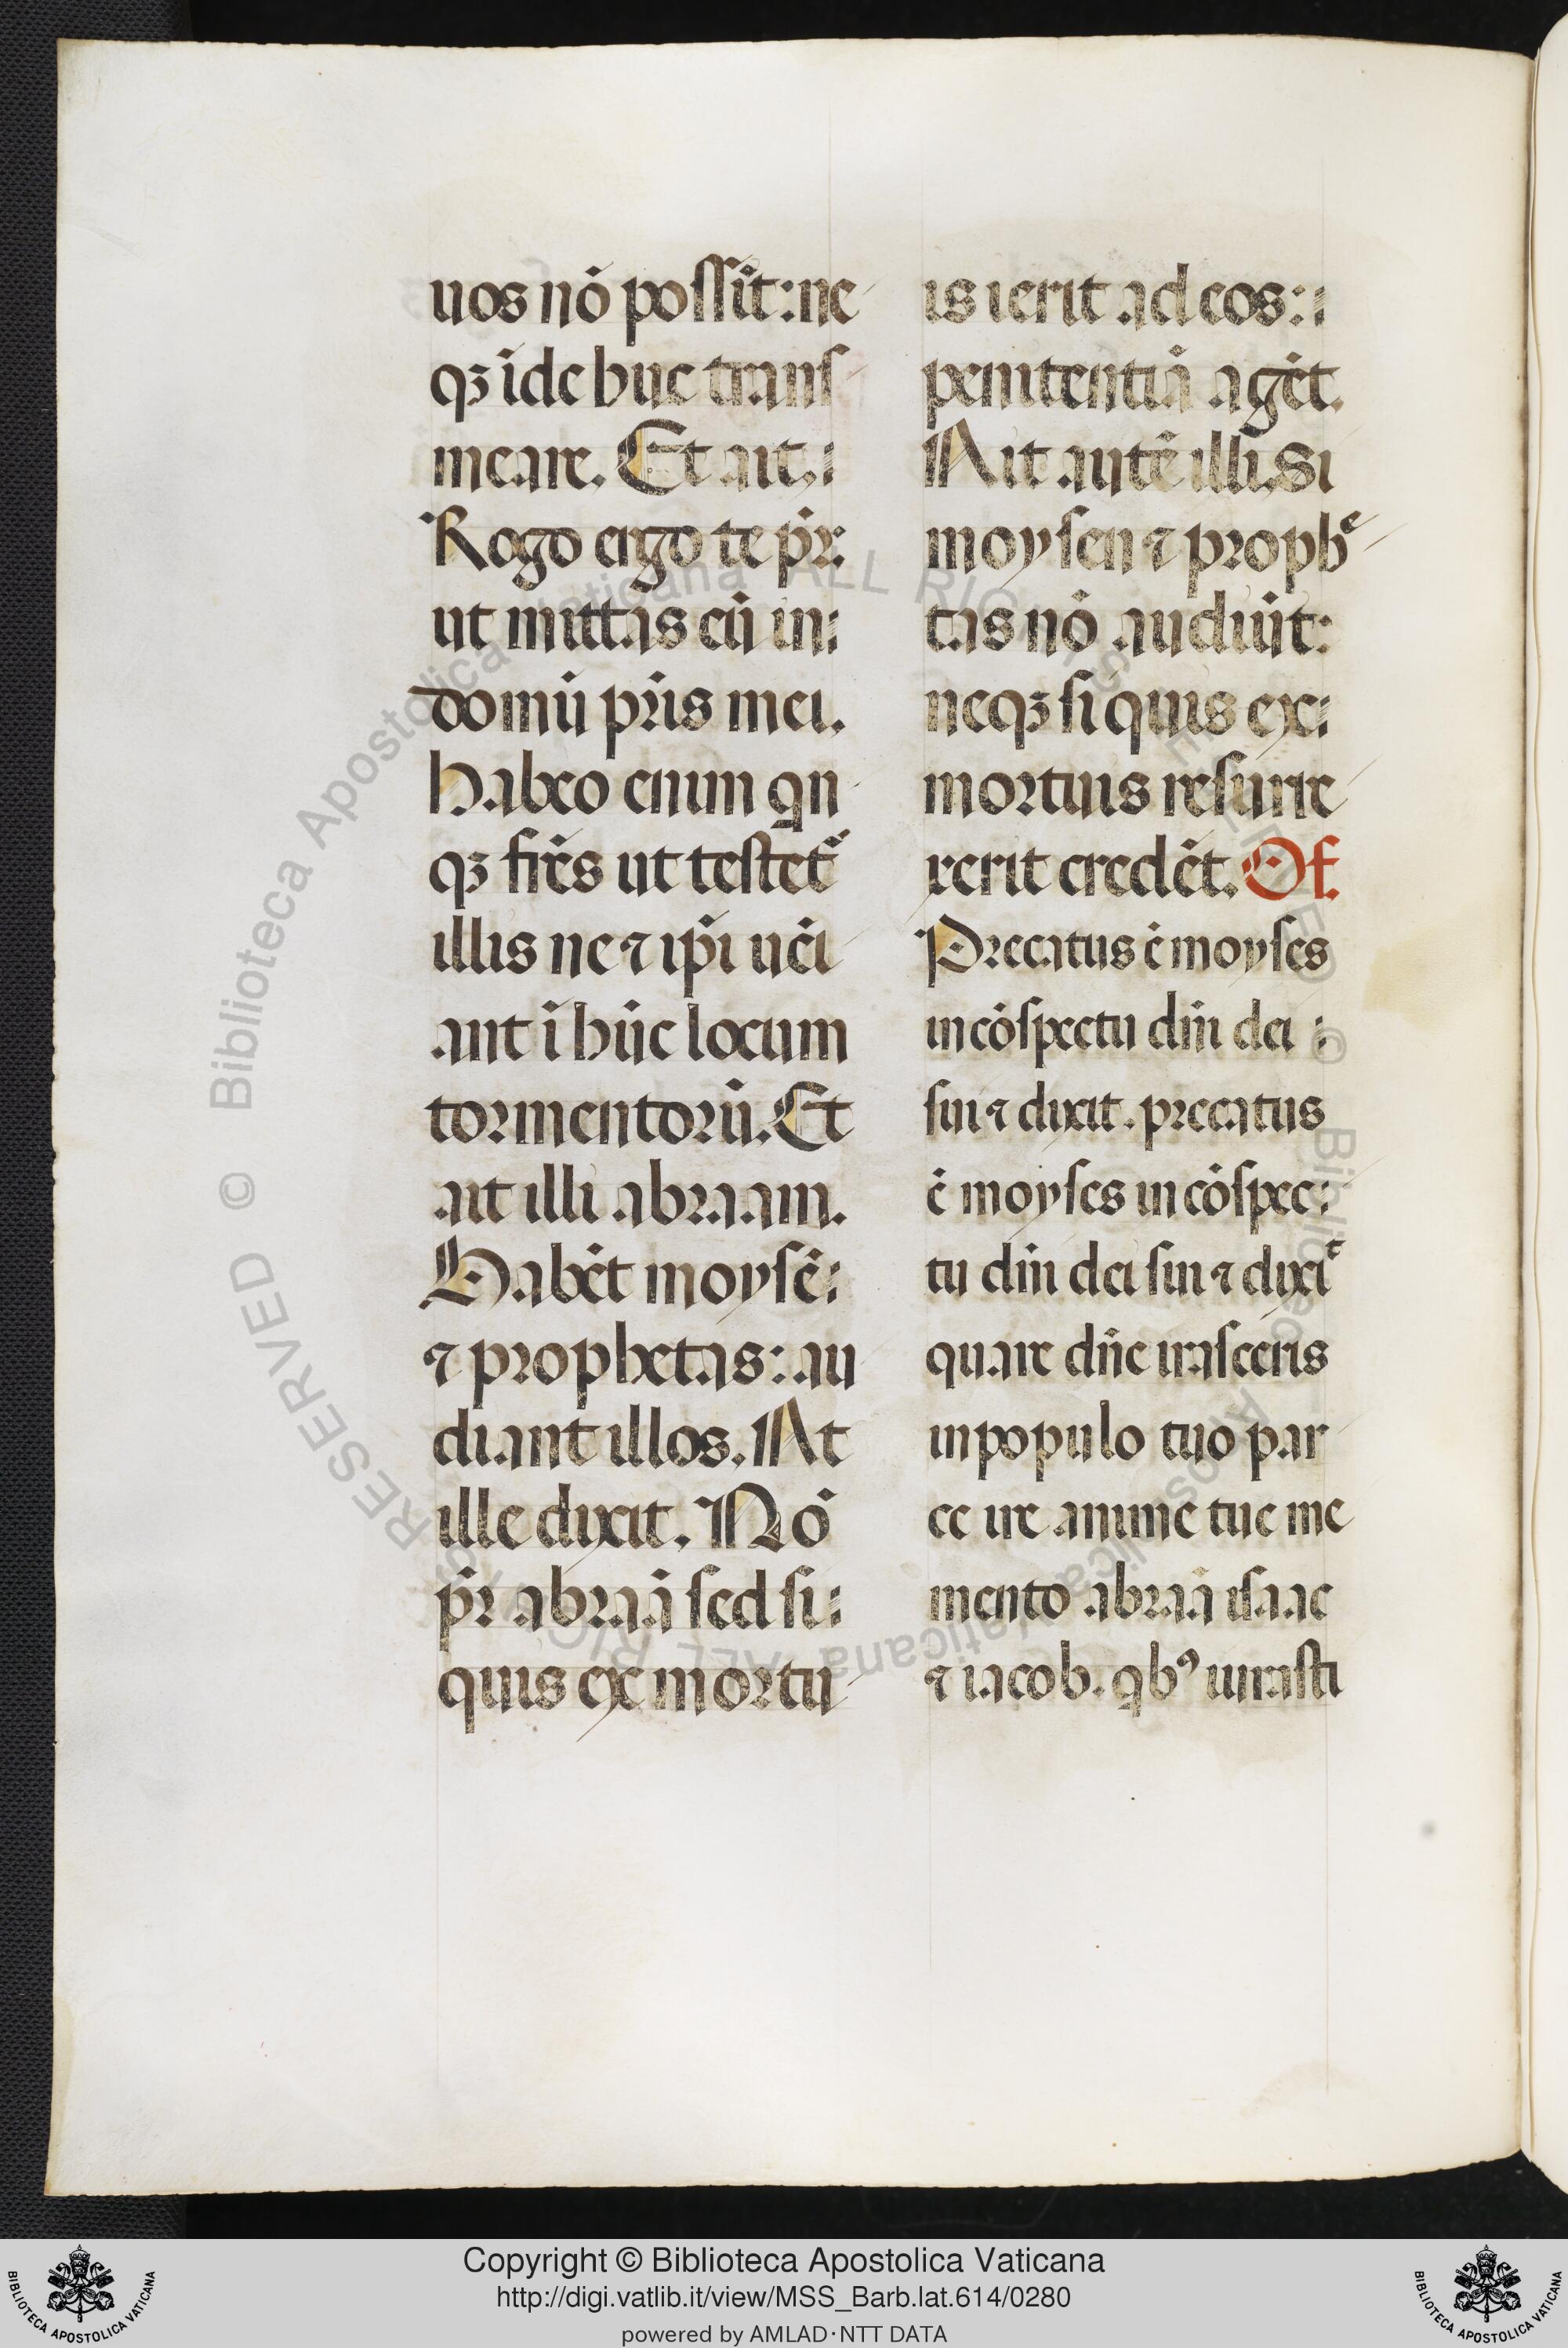 uos nō possīt: ne
qȝ īde huc trans
meare. Et ait.
Rogo ergo te pr̄:
ut mittas eū in
domū pr̄is mei.
habeo enim qn
qȝ fr̄es ut testet᷒
illis ne ⁊ ip̄i uēi
ant ī hūc locum
tormentorū. Et
ait illi abraam.
Habēt moysē
⁊ prophetas: au
diant illos. At
ille dixit. Nō
pr̄ abraā sed si
quis ex mortu
is ierit ad eos:
penitentiā agēt.
Ait autē illi. Si
moysen ⁊ prophͤ
tas nō audiūt:
neqȝ si quis ex
mortuis resurre
xerit credēt. Of.
Precatus ē moyses
in cōspectu dn̄i dei
sui ⁊ dixit. precatus
ē moyses in cōspec
tu dn̄i dei sui ⁊ dixiͭ
quare dn̄e irasceris
in populo tuo par
ce ire anime tue me
mento abraā isaac
⁊ iacob. qbꝰ iurasti
© Biblioteca Apostolica Vaticana ALL RIGHTS RESERVED
Copyright © Biblioteca Apostolica Vaticana
http://digi.vatlib.it/view/MSS_Barb.lat.614/0280
powered by AMLAD·NTT DATA
BIBLIOTECA APOSTOLICA VATICANA
BIBLIOTECA APOSTOLICA VATICANA